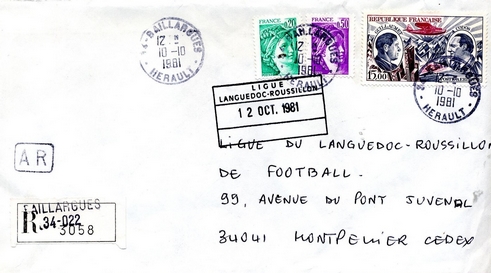 34 - BAILLARGUES
12 H
10-10
1981
- HERAULT -
0,20
0,50
BAILLARGUES
12
10-10
1981
REPUBLIQUE FRANÇAISE
15,00
10-10
1981
HERAULT
LIGUE
LANGUEDOC-ROUSSILLON
12 OCT. 1981
AR
LIGUE DU LANGUEDOC-ROUSSILLON
DE FOOTBALL -
99, AVENUE DU PONT JUVENAL
34041 MONTPELLIER CEDEX
BAILLARGUES
R. 34-022
3058